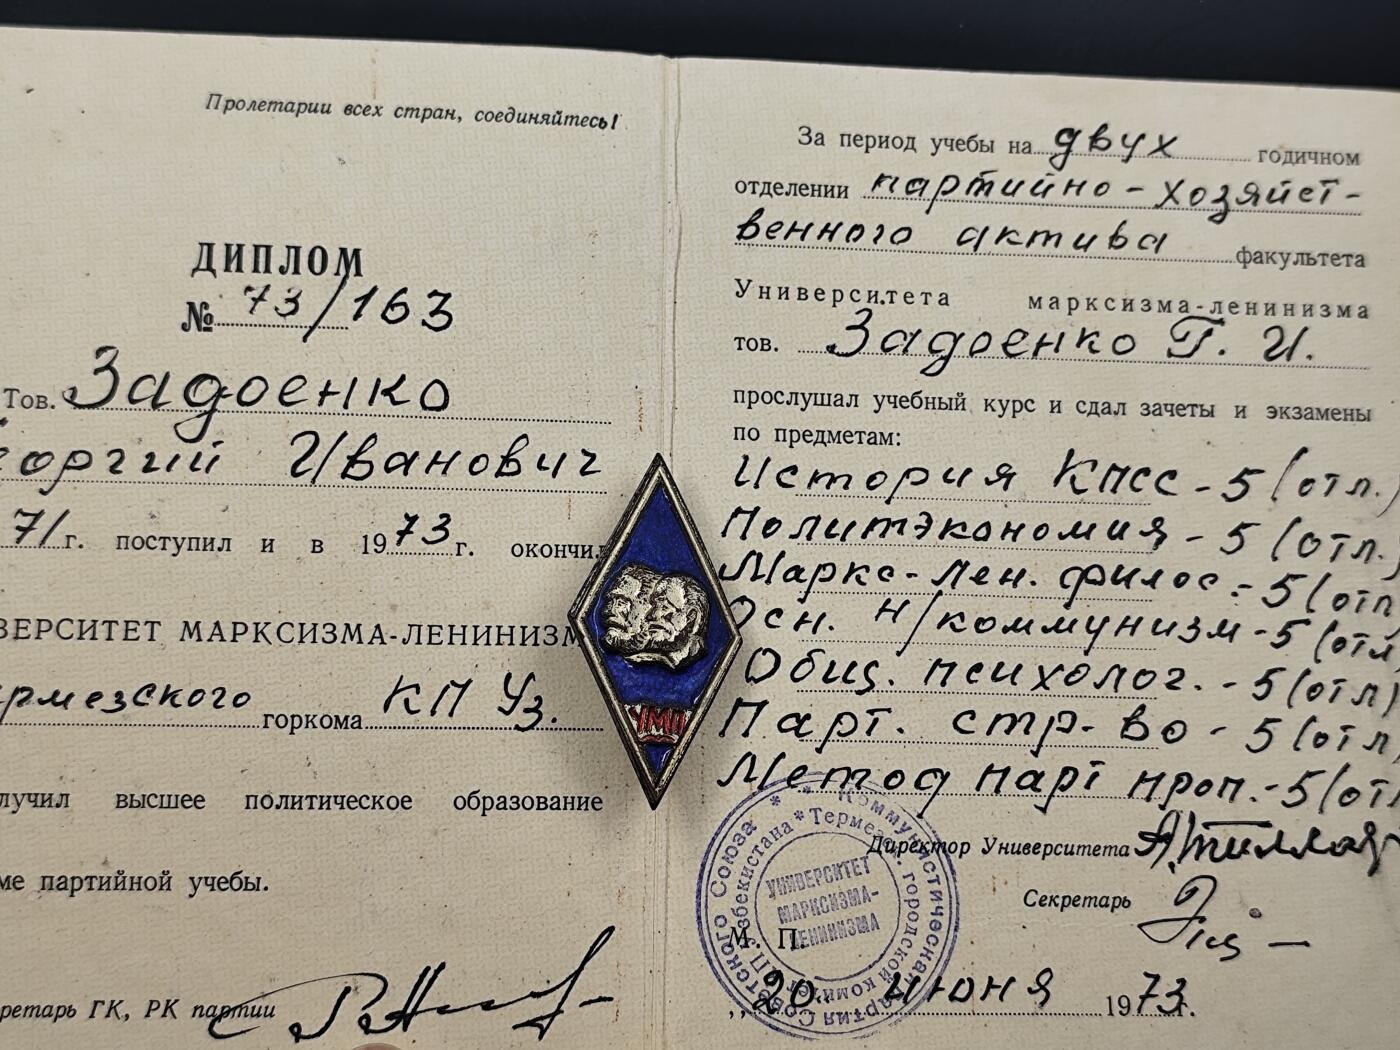 Пролетарии всех стран, соединяйтесь!
ДИПЛОМ
№ 73/163
Тов. Задоенко
еоргий Иванович
71 г. поступил и в 1973 г. окончил
ВЕРСИТЕТ МАРКСИЗМА-ЛЕНИНИЗМ
рмезского горкома КП Уз.
лучил высшее политическое образование
ме партийной учебы.
ретарь ГК, РК партии
За период учебы на двух годичном
отделении партийно-хозяйст-
венного актива факультета
Университета марксизма-ленинизма
тов. Задоенко Г. И.
прослушал учебный курс и сдал зачеты и экзамены
по предметам:
История КПСС - 5 (отл.)
Политэкономия - 5 (отл.)
Маркс-лен. филос. - 5 (отл
Осн. н/коммунизм - 5 (отл
Общ. психолог. - 5 (отл)
Парт. стр-во - 5 (отл
Метод парт проп. - 5 (отл
Директор Университета
Секретарь
М. П.
„20 июня 1973 г.
УМЛ
Коммунистическая партия Советского Союза
Термезск. городской комитет КП Узбекистана
УНИВЕРСИТЕТ
МАРКСИЗМА-
ЛЕНИНИЗМА